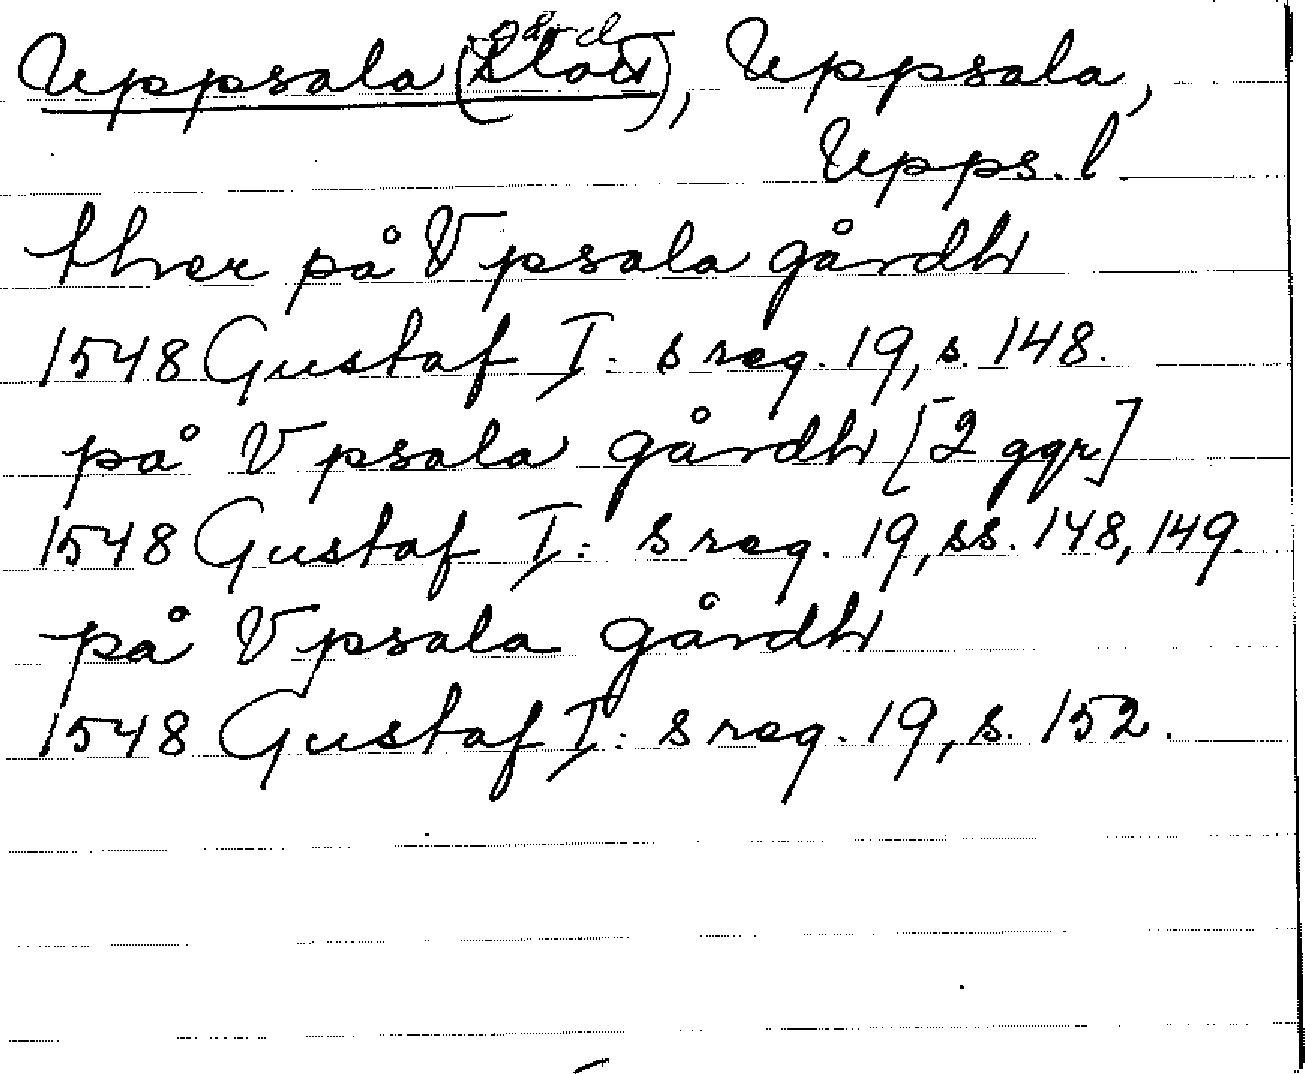 Uppsala (slott), Uppsala,
Upps. l
ther på Vpsala gårdh
1548 Gustaf I: s reg. 19, s. 148.
på Vpsala gårdh [2 ggr]
1548 Gustaf I: s reg. 19, ss. 148, 149.
på Vpsala gårdh
1548 Gustaf I: s reg. 19, s. 152.